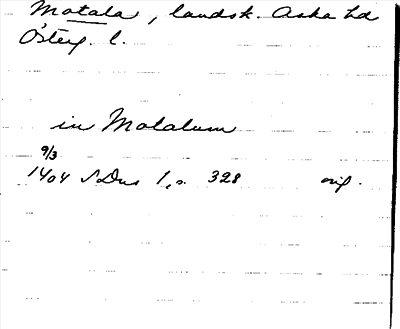 Motala, landsk. Aska hd
Österg. l.
in Motalum
9/3
1404 SDns 1, s. 328 orig.